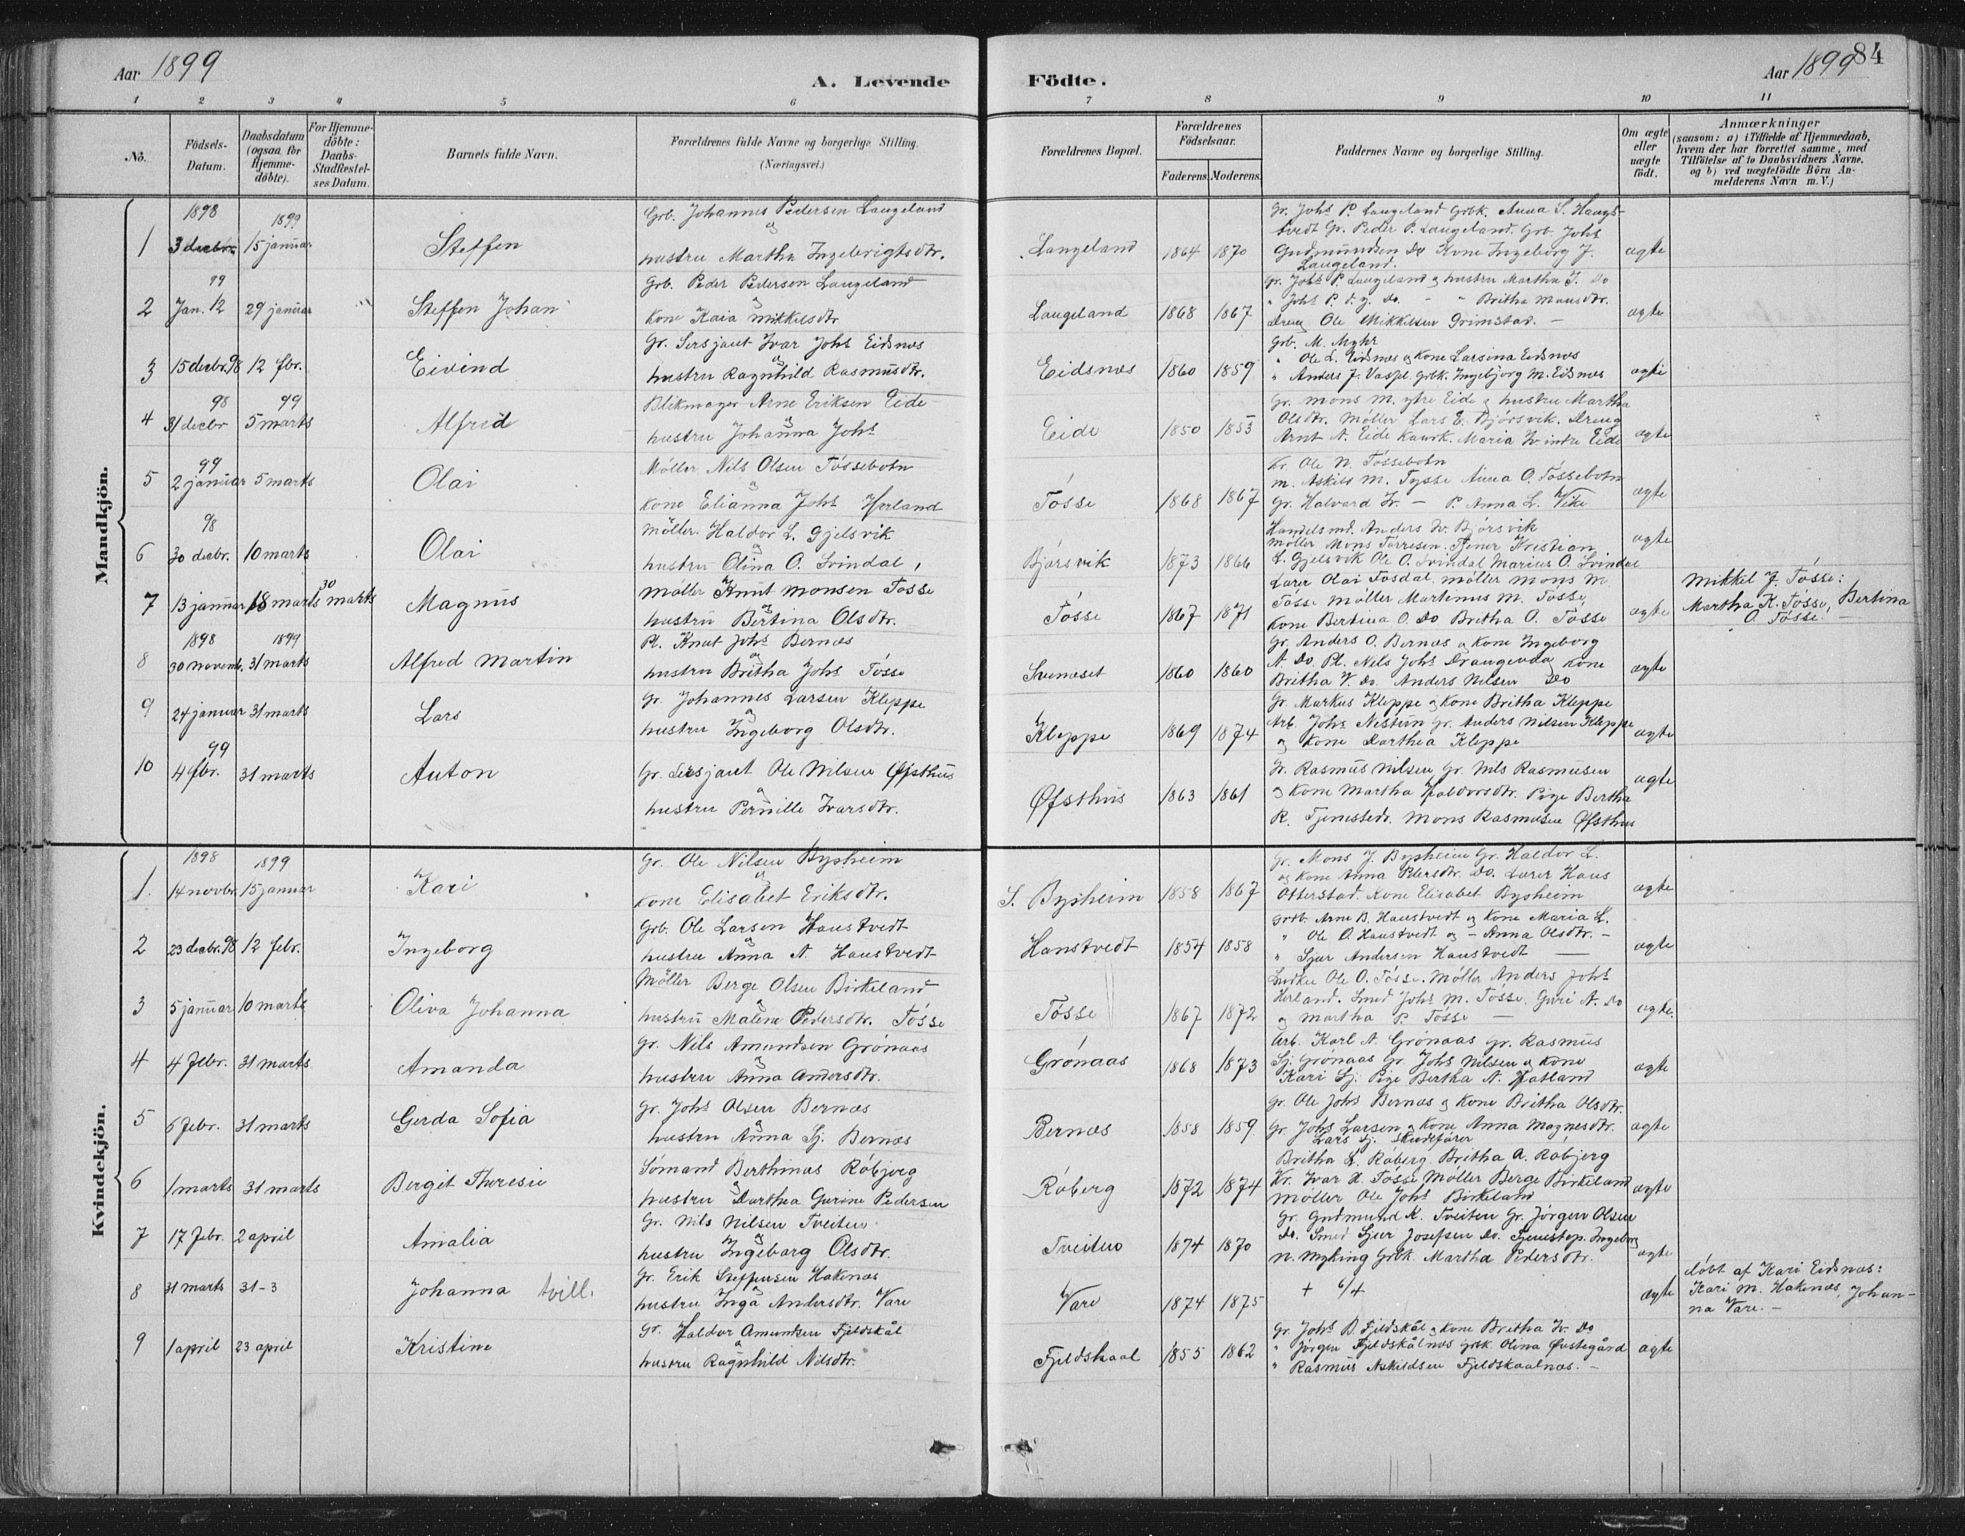 Aar 1899
A. Levende
Födte.
Aar 1899
84
1 2 3 4 5 6 7 8 9 10 11
No.
Födsels-Datum.
Daabsdatum (ogsaa for Hjemme-döbte).
For Hjemme-döbte: Daabs-Stadfestel-ses Datum.
Barnets fulde Navn.
Forældrenes fulde Navne og borgerlige Stilling. (Næringsvei.)
Forældrenes Bopæl.
Forældrenes Födselsaar.
Faderens. Moderens.
Faddernes Navne og borgerlige Stilling.
Om ægte eller uægte födt.
Anmærkninger
(saasom: a) i Tilfælde af Hjemmedaab,
hvem der har forrettet samme, med
Tilföielse af to Daabsvidners Navne,
og b) ved uægtefödte Börn An-
melderens Navn m. V.)
Mandkjön.
1898 1899
1 3 decbr. 15 januar Steffen
Grb. Johannes Pedersen Langeland
og
hustru Martha Ingebrigtsdtr.
Langeland 1864 1870
Gr. Johs P. Langeland Grbk. Anna S. Haugs-
tvedt Gr. Peder P. Langeland. Grb. Johs
Gudmundsen Do Kone Ingeborg J.
Langeland.
ægte
99
2 Jan. 12 29 januar " Steffen Johan
Grb. Peder Pederson Langeland
og
Kone Kaia Mikkelsdtr
Langeland 1868 1867
Gr. Johs P. Langeland og hustru Martha I. Do
" Johs P. d. y. Do. - " Britha Monsdtr.
Dreng Ole Mikkelsen Grimstad. -
ægte
3 15 decbr. 98 12 fbr. Eivind
Gr. Sersjant Ivar Johs Eidsnes
og
hustru Ragnhild Rasmusdtr.
Eidsnes 1860 1859
Grb. M. Myhr
" Ole L. Eidsnes og Kone Larsina Eidsnes
" Anders J. Grbk. Ingebjorg M. Eidsnes
ægte
98 99
4 31 decbr 5 marts Alfred
Blikmager Arne Eriksen Eide
og
hustru Johanna Johs
Eide 1850 1853
Gr. Mons M. ytre Eide og hustru Martha
Olsdtr. Möller Lars E. Bjórsvik. Dreng
Arnt A. Eide Maria indre Eide
ægte
99
5 2 januar 5 marts Olai
Möller Nils Olsen Tóssebotn
og
Kone Elianna Johs Herland
Tósse 1868 1867
Kr. Ole N. Tóssebotn
M. Askild M. Tysse Anna O. Tóssebotn
Gr. Halvard - P. Anna L. Vike
ægte
98
6 30 decbr. 10 marts Olai
Möller Haldor L. Gjelsvik
og
hustru Olina O. Svindal,
Bjórsvik 1873 1866
Handelsmd. Anders Bjórsvik
Möller Mons Torresen. Tjener Kristian
L. Gjelsvik Ole O. Svindal Marius O. Svindal
ægte
7 13 januar 18 marts 30 marts Magnus
Möller Knut Monsen Tósse
og
hustru Bertina Olsdtr.
Tósse 1867 1871
Lærer Olai Fosdal, möller Mons M.
Tósse Möller Martinus M. Tósse,
Kone Bertina O. Do Britha O. Tósse
ægte
Mikkel J. Tósse:
Martha K. Tósse, Bertina
O. Tósse. -
1898 1899
8 30 novemb. 31 marts Alfred Martin
Pl. Knut Johs Bernæs
og
hustru Britha Johs Tósse
1860 1860
Gr. Anders O. Bernæs og Kone Ingeborg
A. Do. Pl. Nils Johs Kone
Britha V. Do. Anders Nilsen Do
ægte
9 24 januar 31 marts Lars
Gr. Johannes Larsen Kleppe
og
hustru Ingeborg Olsdtr.
Kleppe 1869 1874
Gr. Markus Kleppe og Kone Britha Kleppe
Arb. Johs Nistun Gr. Anders Nilsen Kleppe
og Kone Darthea Kleppe
ægte
99
10 4 fbr. 31 marts Anton
Gr. Sersjant Ole Nilsen Øfsthus
og
hustru Pernille Ivarsdtr.
Øfsthus 1863 1861
Rasmus Nilsen Gr. Nils Rasmusen
og Kone Martha Haldorsdtr. Pige Bertha
R. Tjenestedr. Mons Rasmusen Øfsthus
ægte
Kvindekjön.
1898 1899
1. 14 novbr. 15 januar Kari
Gr. Ole Nilsen Bysheim
og
Kone Elisabet Eriksdtr.
S. Bysheim 1858 1867
Gr. Mons J. Bysheim Gr. Haldor L.
og Kone Anna Pedersdtr. Do. Lærer Hans
Otterstad. Kone Elisabet Bysheim
ægte
2 23 decbr. 98 12 febr. Ingeborg
Grb. Ole Larsen Haustvedt
og
hustru Anna A. Haustvedt
Haustvedt 1854 1858
Grb. Arne B. Haustvedt og Kone Maria L.
" Ole O. Haustvedt og - Anna Olsdtr. -
" Sjur Andersen Haustvedt -
ægte
3 5 januar 10 marts Oliva Johanna
Möller Berge Olsen Birkeland
og
hustru Malene Pedersdtr. Tósse
Tósse 1867 1872
Ole O. Tósse. Möller Anders Johs
Herland. Smed Johs M. Tósse. Guri A. Do
og Martha P. Tósse -
ægte.
4 4 febr. 31 marts Amanda
Gr. Nils Amundsen Grónaas
og
hustru Anna Andersdtr.
Grónaas 1868 1873
Arb. Karl A. Grónaas Gr. Rasmus
Sj. Grónaas Gr. Johs Nilsen og Kone
Kari Sj. Pige Bertha A. Hatland
ægte
5 6 febr. 31 marts Gerda Sofia
Gr. Johs Olsen Bernæs
og
hustru Anna Sj. Bernæs
Bernæs 1858 1859
Gr. Ole Johs Bernæs og Kone Britha Olsdtr.
Gr. Johs Larsen og Kone Anna Magnesdtr.
Lars Sj. Skudefører
ægte
6 1 marts 31 marts Bergit Theresie
Sómand Berthinus Róbjerg
og
hustru Darthea Gurine Pedersen
Róberg 1872 1874
Britha L. Róberg Britha A. Róbjerg
Kr. Ivar K. Tósse Möller Berge Birkeland
Möller Ole Johs Birkeland
ægte
7 17 febr. 2 april Amalia
Gr. Nils Nilsen Tveiten
og
hustru Ingeborg Olsdtr.
Tveiten 1874 1870
Gr. Gudmund K. Tveiten Gr. Jórgen Olsen
Do. Smed Sjur Josefsen Do. Tjenestep. Ingeborg
N. Myking Grbk. Martha Pedersdtr.
ægte
8 31 marts 31-3 Johanna tvill.
Gr. Erik Steffensen Hakenæs
og
hustru Inga Andersdtr. Vare
Vare 1874 1875
+ 6/4
ægte
döbt af Kari Eidsnæs:
Kari M. Hakenæs, Johan-
na Vare. -
9 1 april 23 april Kristine
Gr. Haldor Amundsen Fjeldskål
og
hustru Ragnhild Nilsdtr.
Fjeldskaal 1855 1862
Gr. Johs B. Fjeldskål og Kone Britha Do
" Jórgen Fjeldskålnes Grbk Olina Øvstegård
" Rasmus Askildsen Fjeldskaalnæs. -
ægte